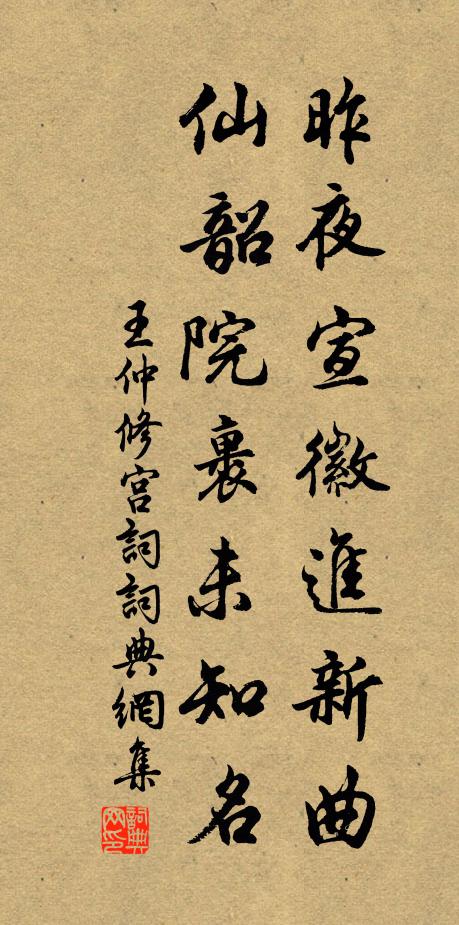 昨夜宣徽進新曲
仙韶院裹未知名
王仲修宫詞詞典網集
詞典网印